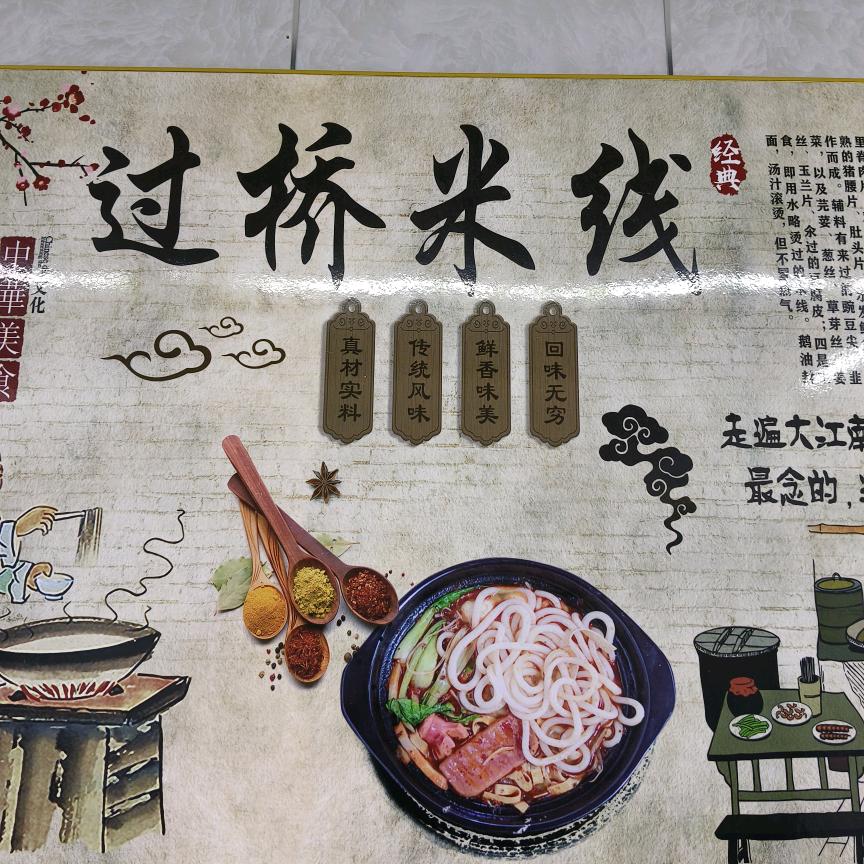 过桥米线
经典
中華美食
文化
真材实料
传统风味
鲜香味美
回味无穷
熟的猪腰片、肚头片、水发
作而成。辅料有来过的豌豆尖
菜,以及芫荽、葱丝、草芽丝、姜
丝、玉兰片、氽过的豆腐皮;四是
食,即用水略烫过的米线。鹅油封
面,汤汁滚烫,但不冒热气。
走遍大江南
最念的,